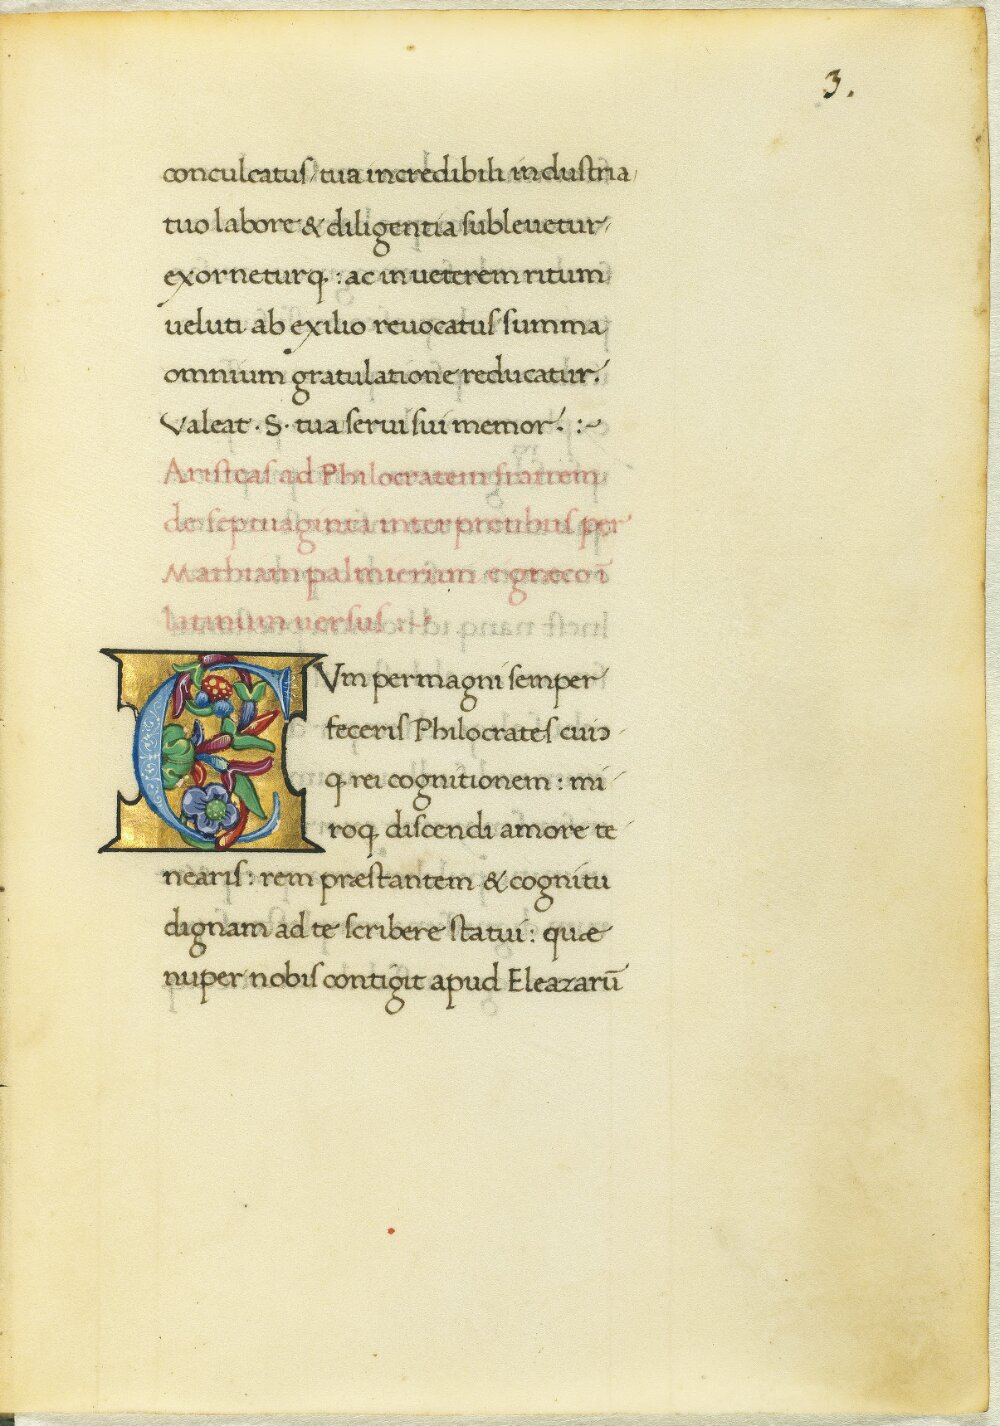 3.
conculcatus / tua incredibili industria /
tuo labore & diligentia subleuetur /
exorneturq. : ac in ueterem ritum
ueluti ab exilio reuocatus summa
omnium gratulatione reducatur.
Valeat. S. tua serui sui memor. :~
Aristeas ad Philocratem fratrem
de septuaginta interpretibus per
Mathiam palmierium e græco ī
latinum uersus .
CVm permagni semper
feceris Philocrates cuiꝰ
q. rei cognitionem : mi
roq. discendi amore te
nearis : rem præstantem & cognitu
dignam ad te scribere statui : quæ
nuper nobis contigit apud Eleazarū